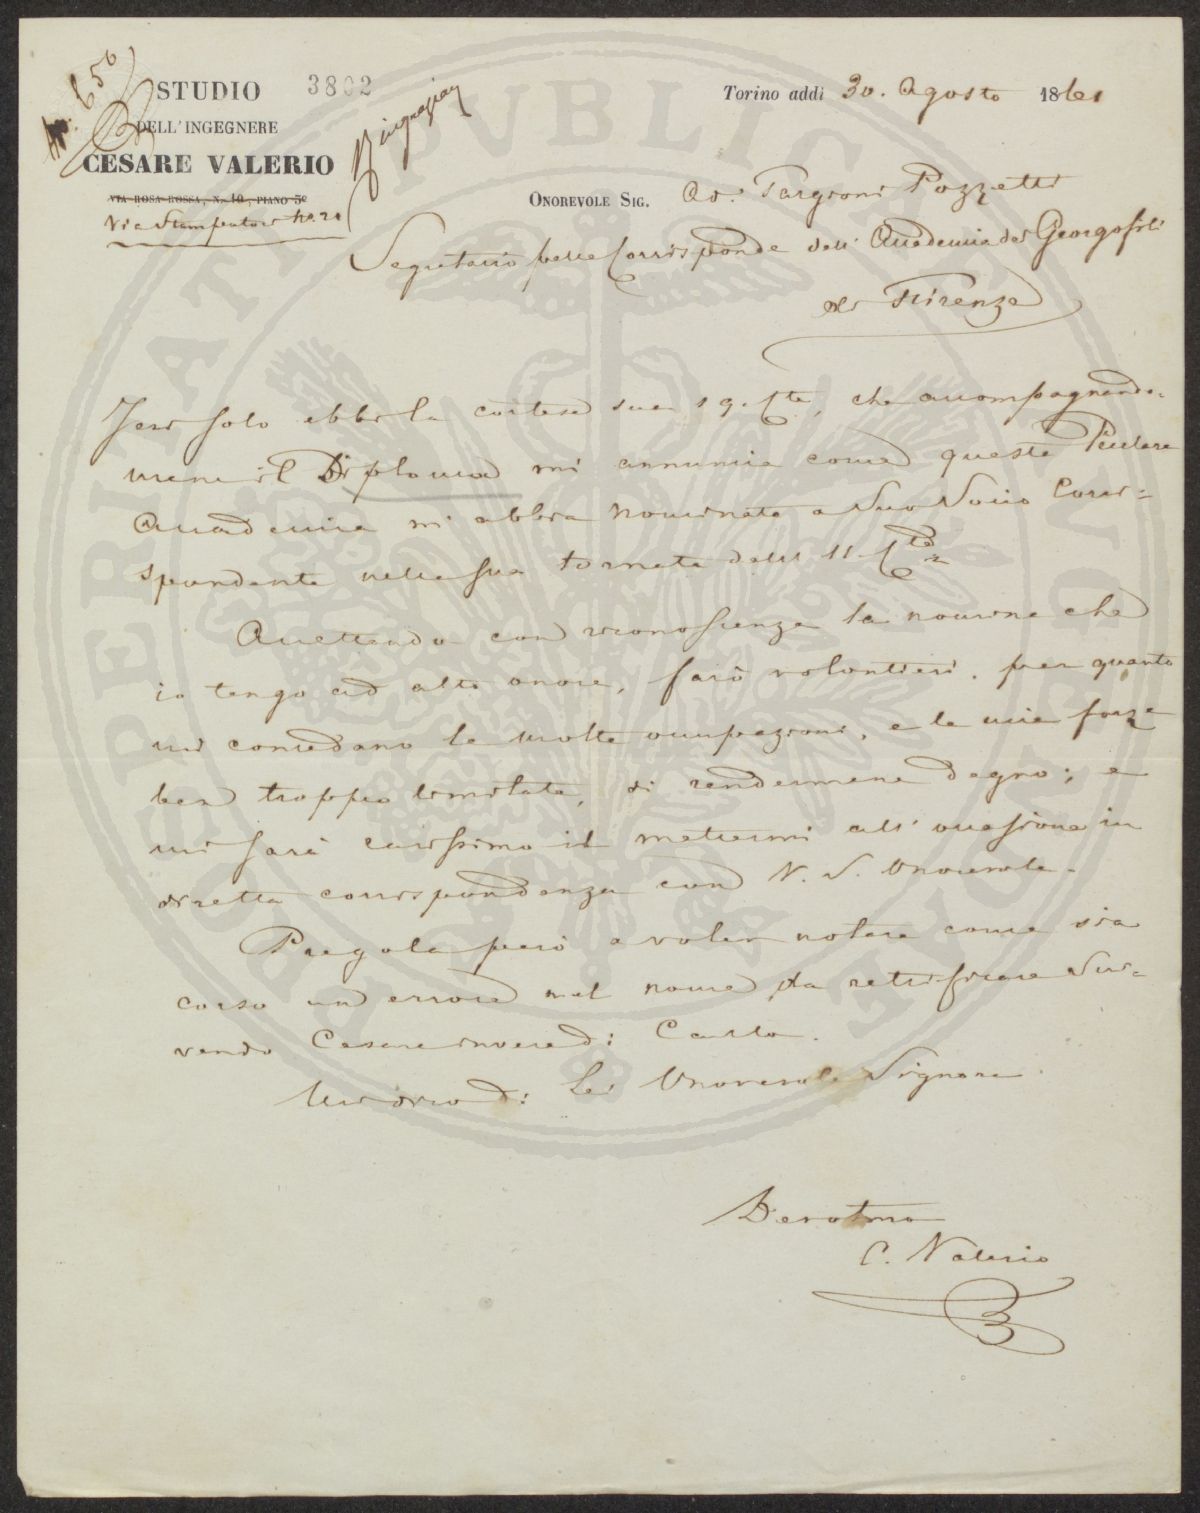 N. 650
STUDIO 3802
DELL'INGEGNERE
CESARE VALERIO
VIA ROSA ROSSA, N. 10, PIANO 3º
Via Stampatori No. 21
Ringraziam
Torino addì 30. Agosto 1861
ONOREVOLE SIG. Ad. Targioni Pozzetti
Segretario delle Corrisponde dell' Accademia dei Georgofili
di Firenze
Jeri solo ebbi la cortese sua 19. che accompagnando-
mene il Diploma mi annunzia come questa
Accademia mi abbia nominato a Suo Socio Corri=
spondente nella sua tornata delli 11
Accettando con riconoscenza la nomina che
io tengo ad alto onore, farò volontieri, per quanto
mi concedano le molte occupazioni, e le mie forze
ben troppo limitate, di rendermene degno; e
mi sarà carissimo il mettermi all' occasione in
diretta corrispondenza con V. S. Onorevole.
Pregola però a voler notare come sia
corso un errore nel nome da rettificare scri-
vendo Cesare invece di Carlo.
Mi dico di Lei Onorevole Signore
Devotmo
C. Valerio
ASPERITATI PUBLICAE